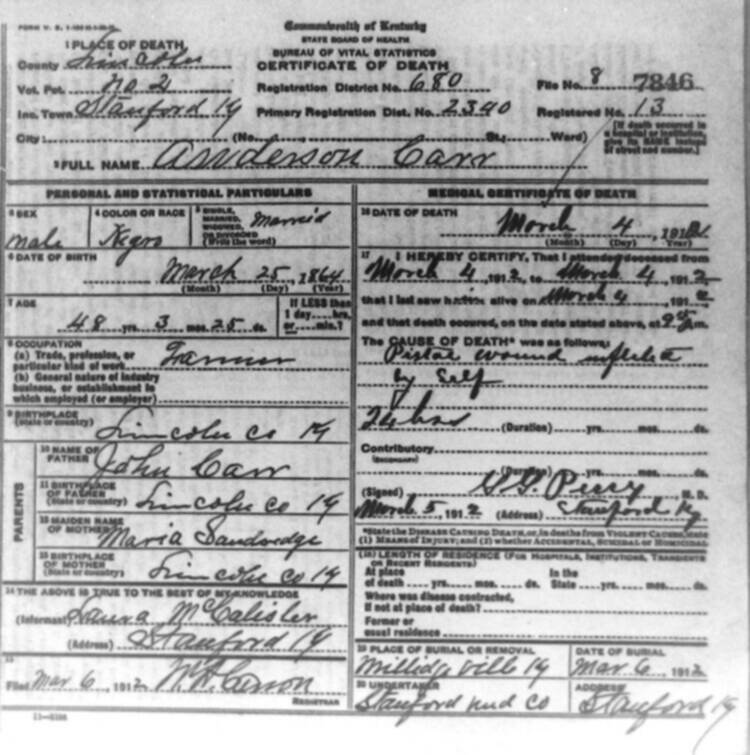 Commonwealth of Kentucky
STATE BOARD OF HEALTH
BUREAU OF VITAL STATISTICS
CERTIFICATE OF DEATH
1 PLACE OF DEATH
County Lincoln
Vot. Pct. No 2
Inc. Town Stanford Ky
City (No. St.; Ward)
Registration District No. 680
Primary Registration Dist. No. 2340
File No. 8 7846
Registered No. 13
[If death occurred in
a hospital or institution,
give its NAME instead
of street and number.]
2 FULL NAME Anderson Carr
PERSONAL AND STATISTICAL PARTICULARS
3 SEX
male
4 COLOR OR RACE
Negro
5 SINGLE,
MARRIED,
WIDOWED,
OR DIVORCED
(Write the word)
Married
6 DATE OF BIRTH
March 25, 1864
(Month) (Day) (Year)
7 AGE
48 yrs. 3 mos. 25 ds.
If LESS than
1 day....hrs.
or....min.?
8 OCCUPATION
(a) Trade, profession, or
particular kind of work Farmer
(b) General nature of industry
business, or establishment in
which employed (or employer)
9 BIRTHPLACE
(State or country) Lincoln Co Ky
PARENTS
10 NAME OF
FATHER John Carr
11 BIRTHPLACE
OF FATHER
(State or country) Lincoln Co Ky
12 MAIDEN NAME
OF MOTHER Maria
13 BIRTHPLACE
OF MOTHER
(State or country) Lincoln Co Ky
14 THE ABOVE IS TRUE TO THE BEST OF MY KNOWLEDGE
(Informant) Laura McCalister
(Address) Stanford Ky
15
Filed Mar 6, 1912
REGISTRAR
MEDICAL CERTIFICATE OF DEATH
16 DATE OF DEATH
March 4, 1912
(Month) (Day) (Year)
17 I HEREBY CERTIFY, That I attended deceased from
March 4, 1912, to March 4, 1912,
that I last saw him alive on March 4, 1912
and that death occured, on the date stated above, at m.
The CAUSE OF DEATH* was as follows:
Pistol wound inflicted
by Self
(Duration) yrs. mos. ds.
Contributory
(SECONDARY)
(Duration) yrs. mos. ds.
(Signed) M. D.
March 5, 1912 (Address) Stanford Ky
*State the DISEASE CAUSING DEATH, or, in deaths from VIOLENT CAUSES, state
(1) MEANS OF INJURY; and (2) whether ACCIDENTAL, SUICIDAL OR HOMICIDAL
(18) LENGTH OF RESIDENCE (FOR HOSPITALS, INSTITUTIONS, TRANSIENTS
OR RECENT RESIDENTS)
At place
of death yrs. mos. ds.
In the
State yrs. mos. ds.
Where was disease contracted,
If not at place of death?
Former or
usual residence
19 PLACE OF BURIAL OR REMOVAL
Milledgeville Ky
DATE OF BURIAL
Mar 6, 1912
20 UNDERTAKER
Stanford und Co
ADDRESS
Stanford Ky